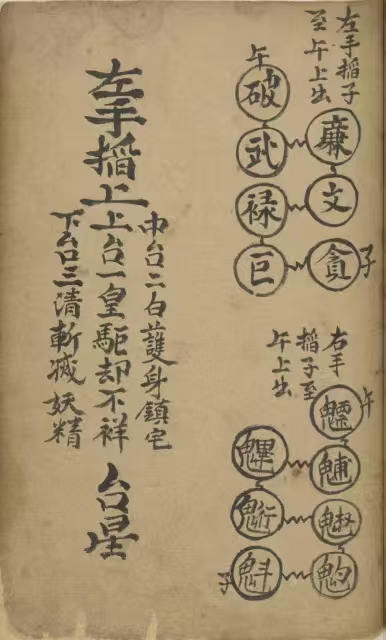 左手搯子
至午上出
廉
文
貪
子
午
破
武
禄
巨
右手
搯子至
午上出
午
魒
魓
魁
子
左手搯上
中台二白護身鎮宅
上台一皇驅却不祥
下台三清斬滅妖精
台星